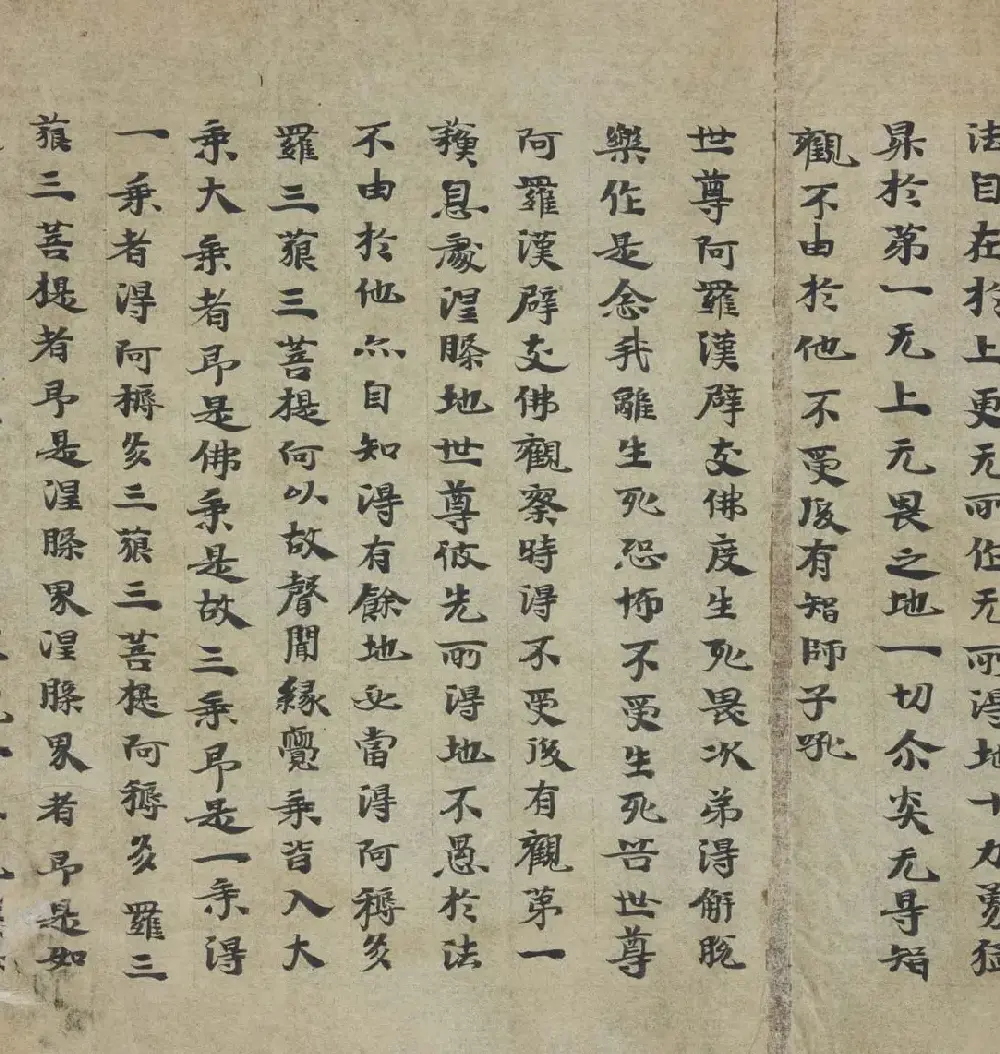 法自在於上更无所作无所得地十力勇猛
昇於第一无上无畏之地一切尒炎无㝵智
觀不由於他不受後有智師子吼
世尊阿羅漢辟支佛度生死畏次第得解脫
樂作是念我離生死恐怖不受生死苦世尊
阿羅漢辟支佛觀察時得不受後有觀第一
蘓息處涅槃地世尊彼先所得地不愚於法
不由於他亦自知得有餘地必當得阿耨多
羅三藐三菩提何以故聲聞緣覺乘皆入大
乘大乘者即是佛乘是故三乘即是一乘得
一乘者得阿耨多三藐三菩提阿耨多羅三
藐三菩提者即是涅槃界涅槃界者即是如